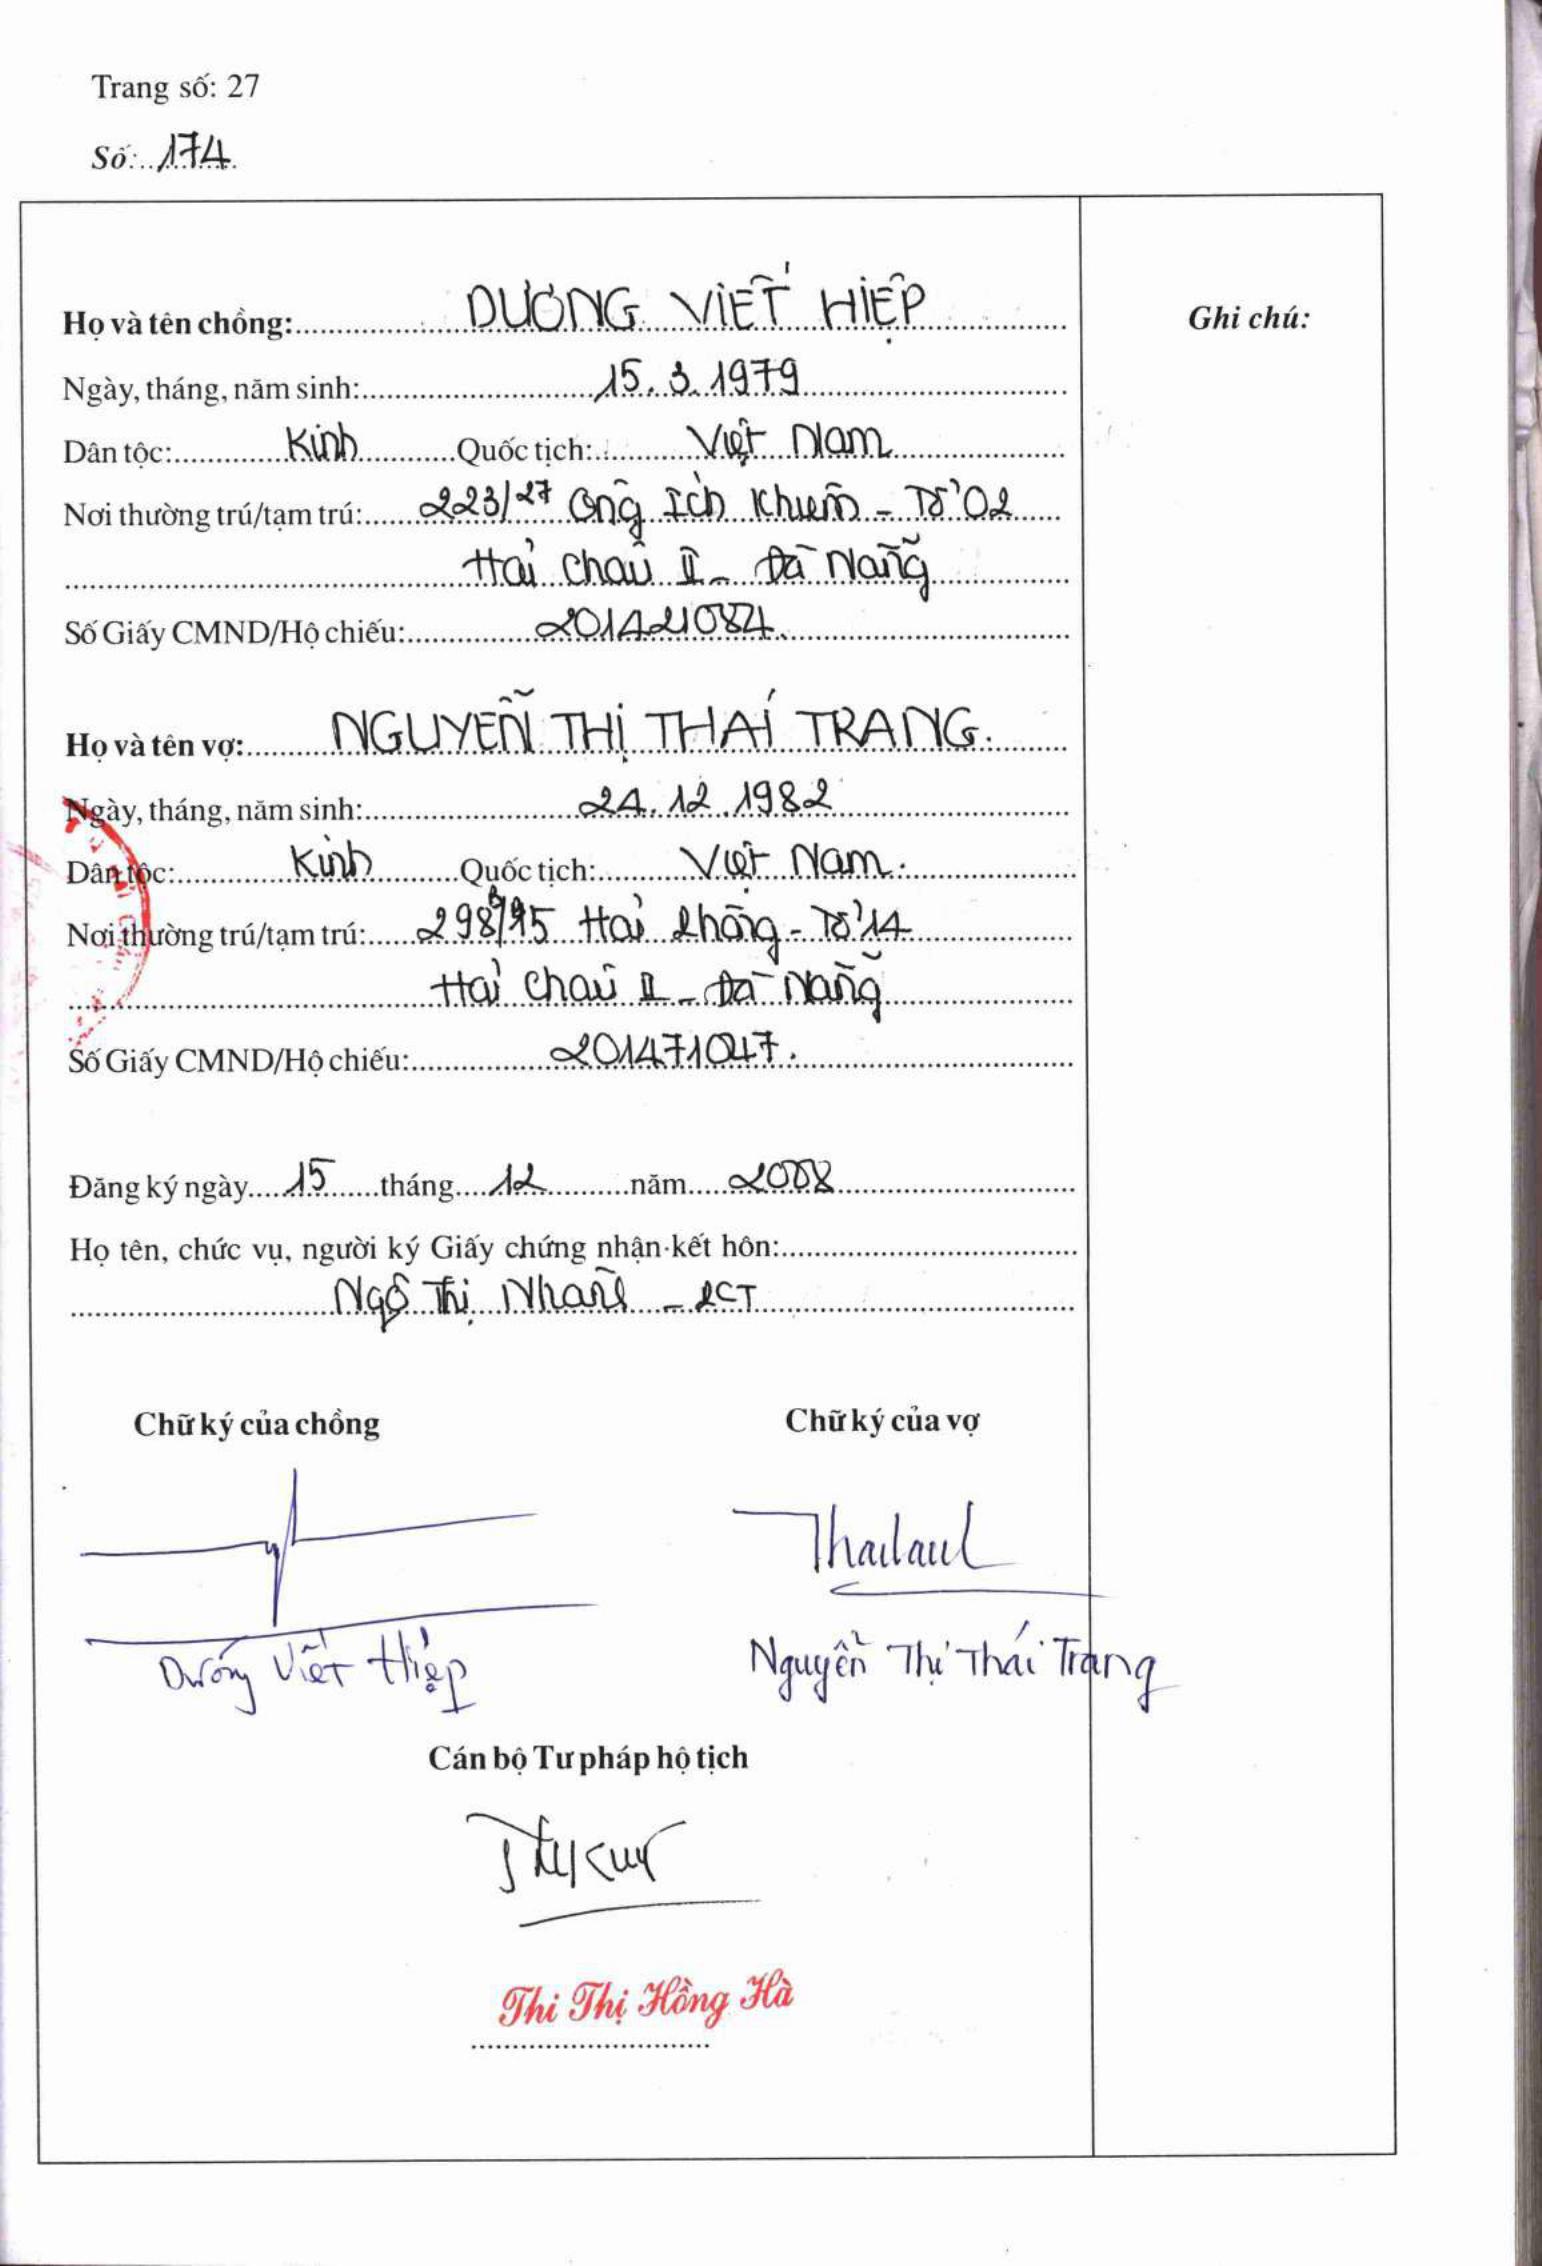 Trang số: 27
Số: 174
Họ và tên chồng: DƯƠNG VIẾT HIỆP
Ghi chú:
Ngày, tháng, năm sinh: 15.3.1979
Dân tộc: Kinh Quốc tịch: Việt Nam
Nơi thường trú/tạm trú: 223/27 Ông Ích Khiêm - Tổ 02
Hải Châu II - Đà Nẵng
Số Giấy CMND/Hộ chiếu: 201421084
Họ và tên vợ: NGUYỄN THỊ THÁI TRANG.
Ngày, tháng, năm sinh: 24.12.1982
Dân tộc: Kinh Quốc tịch: Việt Nam.
Nơi thường trú/tạm trú: Hải Phòng - Tổ 14
Hải Châu II - Đà Nẵng
Số Giấy CMND/Hộ chiếu: 201471047.
Đăng ký ngày 15 tháng 12 năm 2008
Họ tên, chức vụ, người ký Giấy chứng nhận kết hôn:
Ngô Thị Nhanh - PCT
Chữ ký của chồng
Chữ ký của vợ
Dương Viết Hiệp
Nguyễn Thị Thái Trang
Cán bộ Tư pháp hộ tịch
Thi Thị Hồng Hà